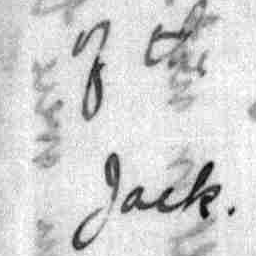 of the
Jack.